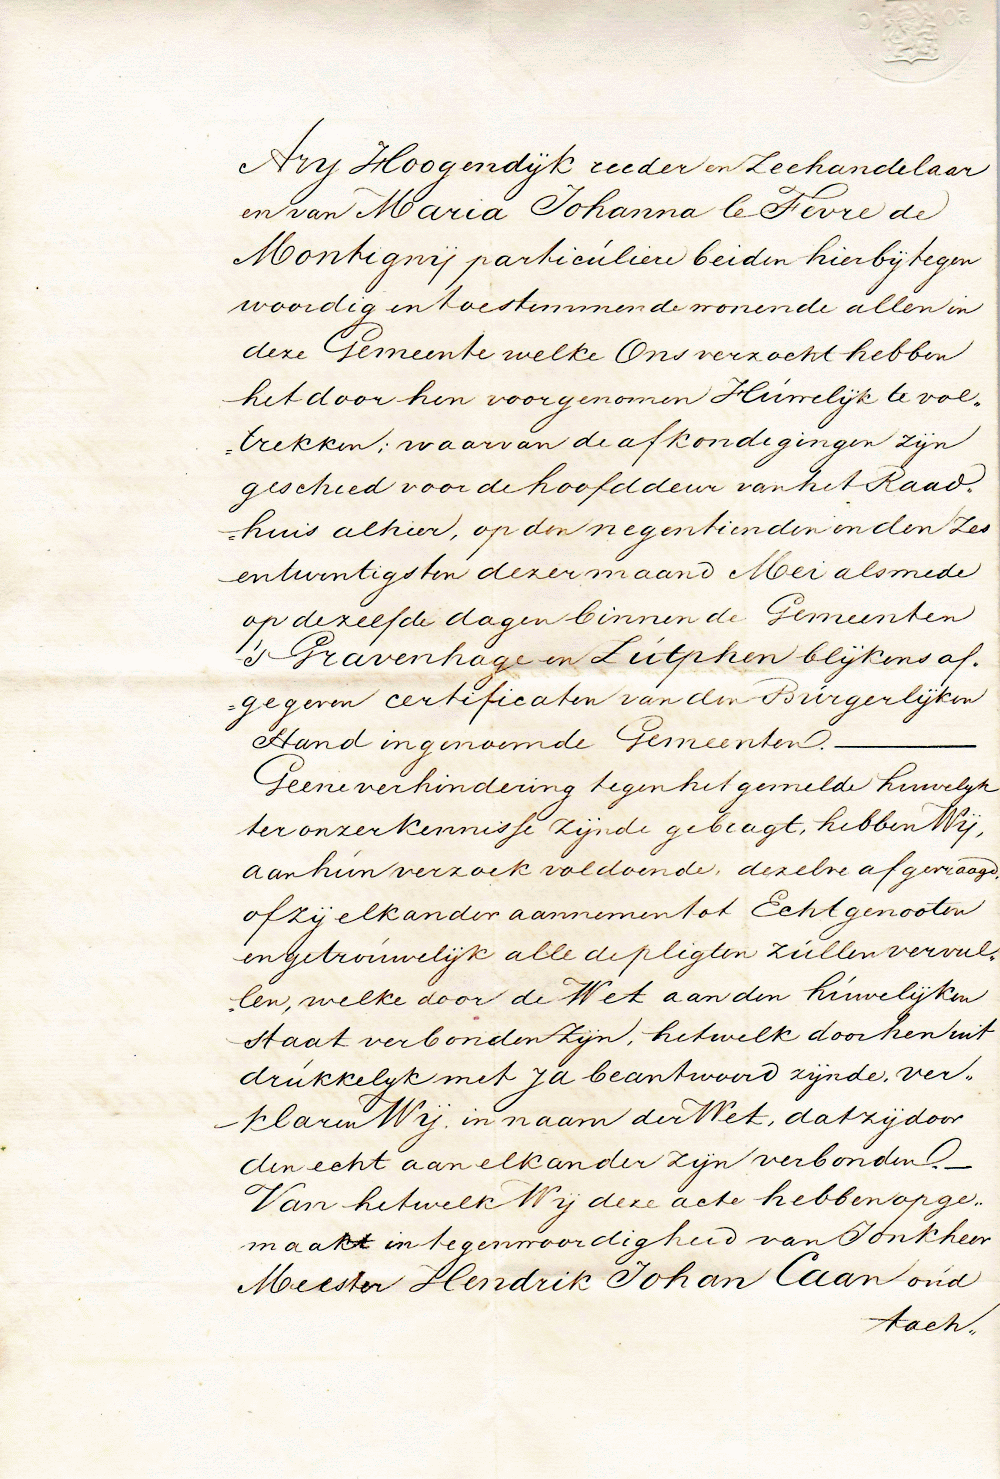 Ary Hoogendijk reeder en Zeehandelaar
en van Maria Johanna le Fevre de
Montignij particúliere beiden hierbij tegen
woordig en toestemmende wonende allen in
deze Gemeente welke Ons verzocht hebben
het door hen voorgenomen Húwelijk te vol„
„trekken; waarvan de afkondegingen zijn
geschied voor de hoofddeur van het Raad„
„huis alhier, op den negentienden en den Zes
entwintigsten dezer maand Mei alsmede
op dezelfde dagen binnen de Gemeenten
's Gravenhage en Zútphen blijkens af„
„gegeven certificaten van den Búrgerlijken
Stand in genoemde Gemeenten.
Geene verhindering tegen het gemelde huwelijk
ter onzer kennisse zijnde gebragt, hebben Wij,
aan hún verzoek voldoende, dezelve afgevraagd,
of zij elkander aannemen tot Echtgenooten
en getroúwelijk alle de pligten zúllen vervul„
„len, welke door de Wet aan den húwelijken
staat verbonden zijn, hetwelk door hen uit
drúkkelijk met Ja beantwoord zijnde, ver„
klaren Wij, in naam der Wet, dat zij door
den echt aan elkander zijn verbonden.
Van hetwelk Wij deze acte hebben opge„
maakt in tegenwoordigheid van Jonkheer
Meester Hendrik Johan Caan oúd
tach„